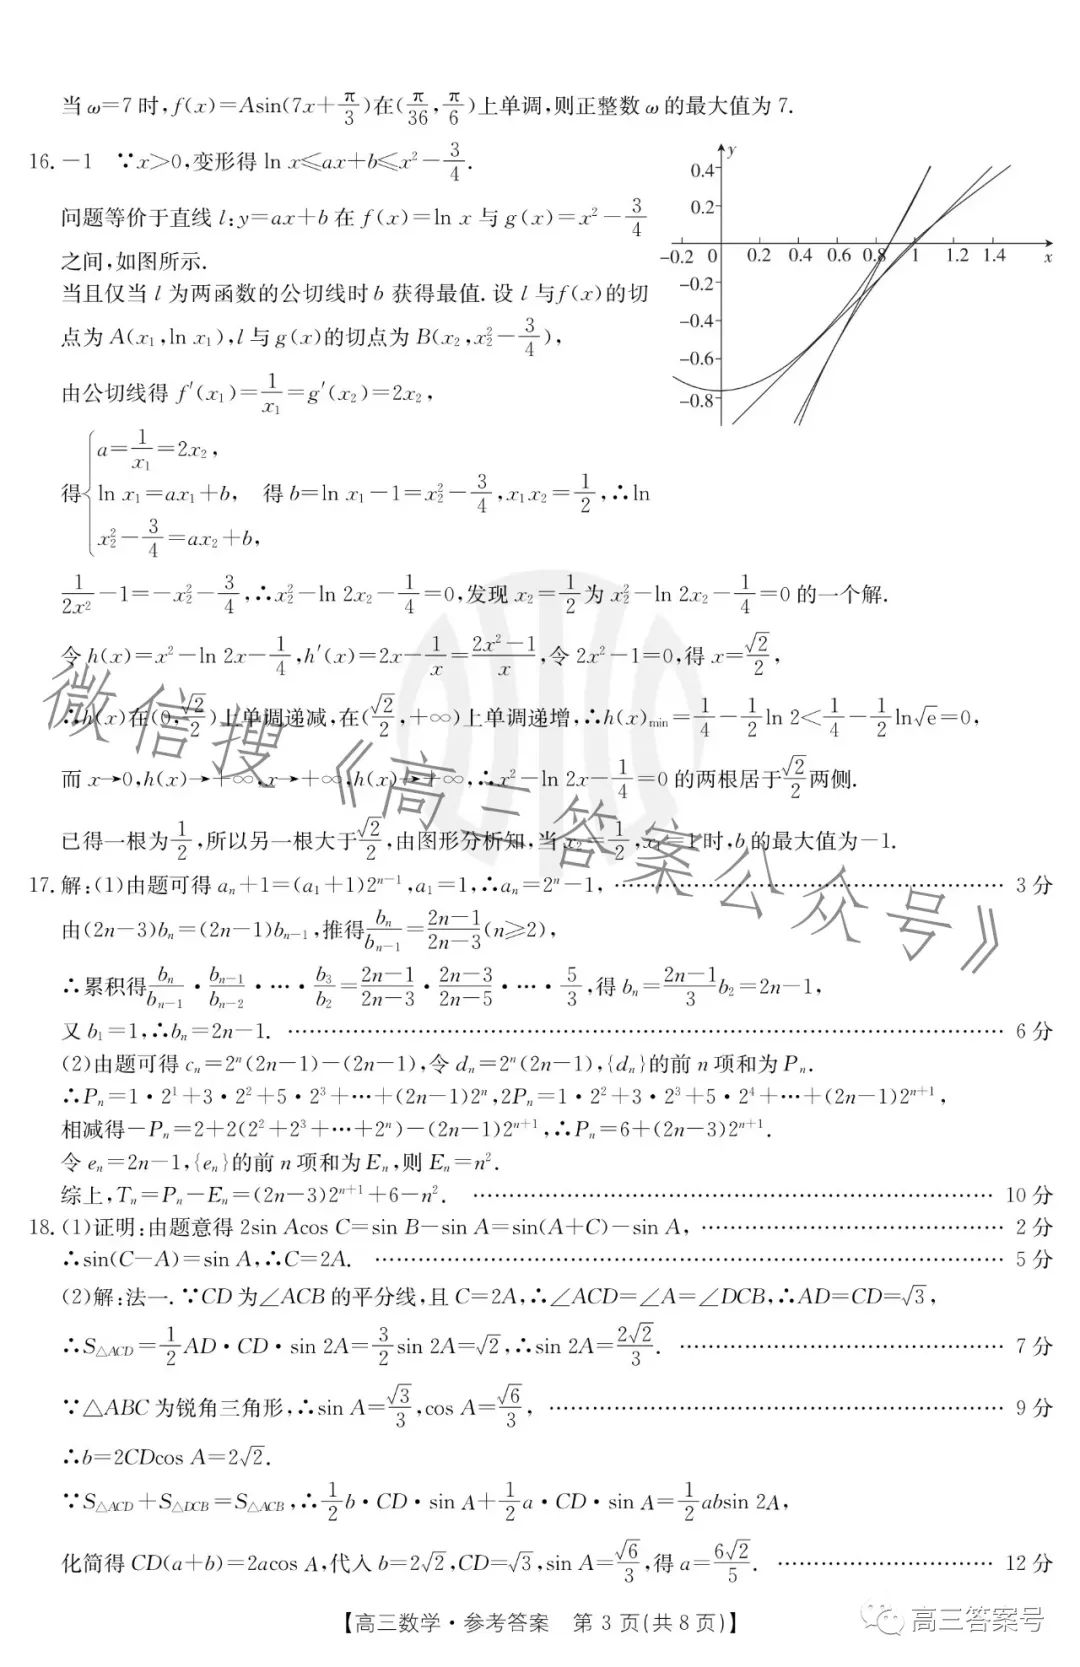 当ω=7时,f(x)=Asin(7x+π/3)在(π/36,π/6)上单调,则正整数ω的最大值为7.
16.-1 ∵x>0,变形得 ln x≤ax+b≤x²-3/4.
问题等价于直线l:y=ax+b在f(x)=ln x与g(x)=x²-3/4
之间,如图所示.
当且仅当l为两函数的公切线时b获得最值.设l与f(x)的切
点为A(x₁,ln x₁),l与g(x)的切点为B(x₂,x₂²-3/4),
由公切线得f′(x₁)=1/x₁=g′(x₂)=2x₂,
y
0.4
0.2
-0.2 0 0.2 0.4 0.6 0.8 1 1.2 1.4 x
-0.2
-0.4
-0.6
-0.8
a=1/x₁=2x₂,
得{ln x₁=ax₁+b, 得b=ln x₁-1=x₂²-3/4,x₁x₂=1/2,∴ln
x₂²-3/4=ax₂+b,
1/2x²-1=-x₂²-3/4,∴x₂²-ln 2x₂-1/4=0,发现x₂=1/2为x₂²-ln 2x₂-1/4=0的一个解.
令h(x)=x²-ln 2x-1/4,h′(x)=2x-1/x=(2x²-1)/x,令2x²-1=0,得x=√2/2,
∴h(x)在(0,√2/2)上单调递减,在(√2/2,+∞)上单调递增,∴h(x)min=1/4-1/2 ln 2<1/4-1/2 ln√e=0,
而x→0,h(x)→+∞,x→+∞,h(x)→+∞,∴x²-ln 2x-1/4=0的两根居于√2/2两侧.
已得一根为1/2,所以另一根大于√2/2,由图形分析知,当x₂=1/2,x₁=1时,b的最大值为-1.
17.解:(1)由题可得aₙ+1=(a₁+1)2ⁿ⁻¹,a₁=1,∴aₙ=2ⁿ-1, …… 3分
由(2n-3)bₙ=(2n-1)bₙ₋₁,推得bₙ/bₙ₋₁=(2n-1)/(2n-3)(n≥2),
∴累积得bₙ/bₙ₋₁·bₙ₋₁/bₙ₋₂·…·b₃/b₂=(2n-1)/(2n-3)·(2n-3)/(2n-5)·…·5/3,得bₙ=(2n-1)/3 b₂=2n-1,
又b₁=1,∴bₙ=2n-1. …… 6分
(2)由题可得cₙ=2ⁿ(2n-1)-(2n-1),令dₙ=2ⁿ(2n-1),{dₙ}的前n项和为Pₙ.
∴Pₙ=1·2¹+3·2²+5·2³+…+(2n-1)2ⁿ,2Pₙ=1·2²+3·2³+5·2⁴+…+(2n-1)2ⁿ⁺¹,
相减得-Pₙ=2+2(2²+2³+…+2ⁿ)-(2n-1)2ⁿ⁺¹,∴Pₙ=6+(2n-3)2ⁿ⁺¹.
令eₙ=2n-1,{eₙ}的前n项和为Eₙ,则Eₙ=n².
综上,Tₙ=Pₙ-Eₙ=(2n-3)2ⁿ⁺¹+6-n². …… 10分
18.(1)证明:由题意得2sin Acos C=sin B-sin A=sin(A+C)-sin A, …… 2分
∴sin(C-A)=sin A,∴C=2A. …… 5分
(2)解:法一.∵CD为∠ACB的平分线,且C=2A,∴∠ACD=∠A=∠DCB,∴AD=CD=√3,
∴S△ACD=1/2 AD·CD·sin 2A=3/2 sin 2A=√2,∴sin 2A=2√2/3. …… 7分
∵△ABC为锐角三角形,∴sin A=√3/3,cos A=√6/3, …… 9分
∴b=2CDcos A=2√2.
∵S△ACD+S△DCB=S△ACB,∴1/2 b·CD·sin A+1/2 a·CD·sin A=1/2 absin 2A,
化简得CD(a+b)=2acos A,代入b=2√2,CD=√3,sin A=√6/3,得a=6√2/5. …… 12分
【高三数学·参考答案 第3页(共8页)】
微信搜《高三答案公众号》
高三答案号